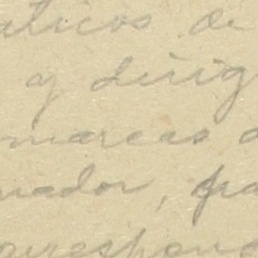 aticos de
y dirig
marcas d
nador, pa
orrespond